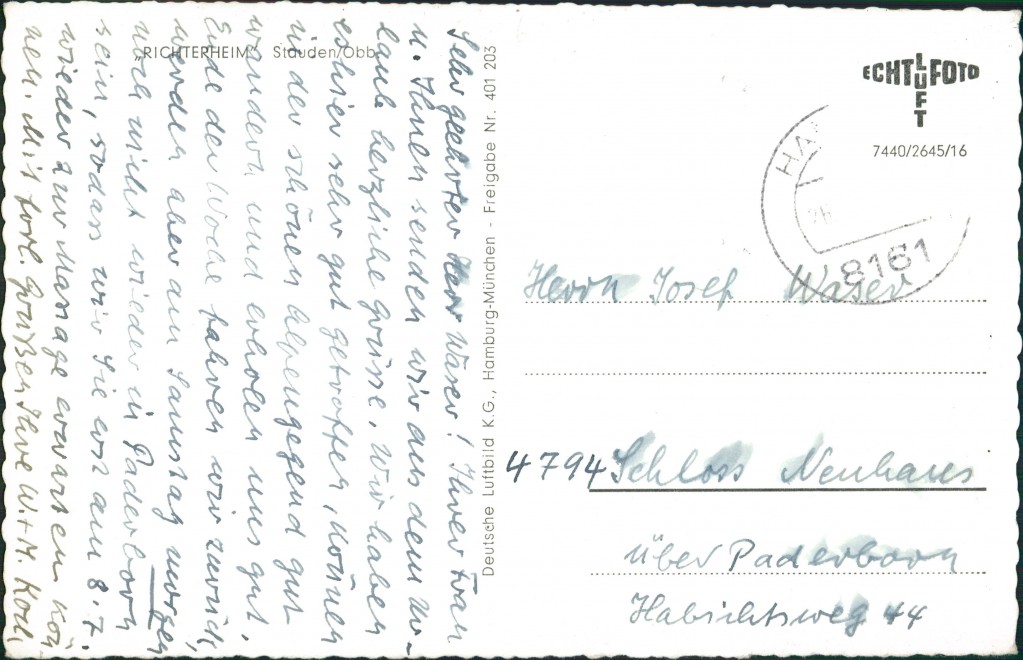 „RICHTERHEIM" Stauden/Obb.
Sehr geehrter Herr Waser! Ihrer Frau
u. Ihnen senden wir aus dem Ur-
laub herzliche Grüsse. Wir haben
es hier sehr gut getroffen, können
in der schönen Alpengegend gut
wandern und erholen uns gut.
Ende der Woche fahren wir zurück,
werden aber am Samstag morgen
noch nicht wieder in Paderborn
sein, sodass wir Sie erst am 8.7.
wieder zur Massage erwarten kön-
nen. Mit frdl. Grüßen Ihre W. + M. Koch
Deutsche Luftbild K.G., Hamburg-München - Freigabe Nr. 401 203
ECHT LUFTFOTO
LUFT
7440/2645/16
HA
26
8161
Herrn Josef Waser
4794 Schloss Neuhaus
über Paderborn
Habichtsweg 44